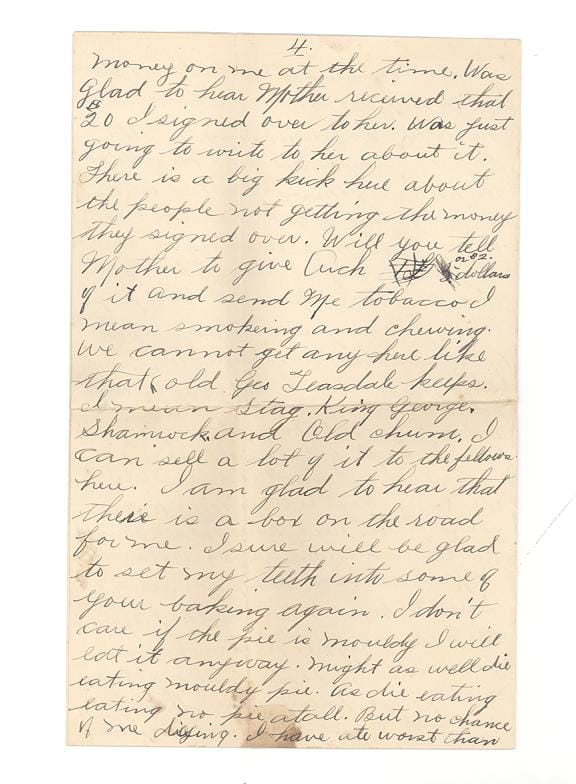 4.
money on me at the time. Was
glad to hear Mother received that
$20 I signed over to her. Was just
going to write to her about it.
There is a big kick here about
the people not getting the money
they signed over. Will you tell
or $2.
Mother to give 5 dollars
of it and send me tobacco I
mean smokeing and chewing.
We cannot get any here like
that old Geo Teasdale keeps.
I mean Stag, King George.
Shamrock, and Old chum. I
can sell a lot of it to the fellows
here. I am glad to hear that
there is a box on the road
for me. I sure will be glad
to set my teeth into some of
your baking again. I don't
care if the pie is mouldy I will
eat it anyway. Might as well die
eating mouldy pie. As die eating
eating no pie atall. But no chance
of me dieing. I have ate worst than